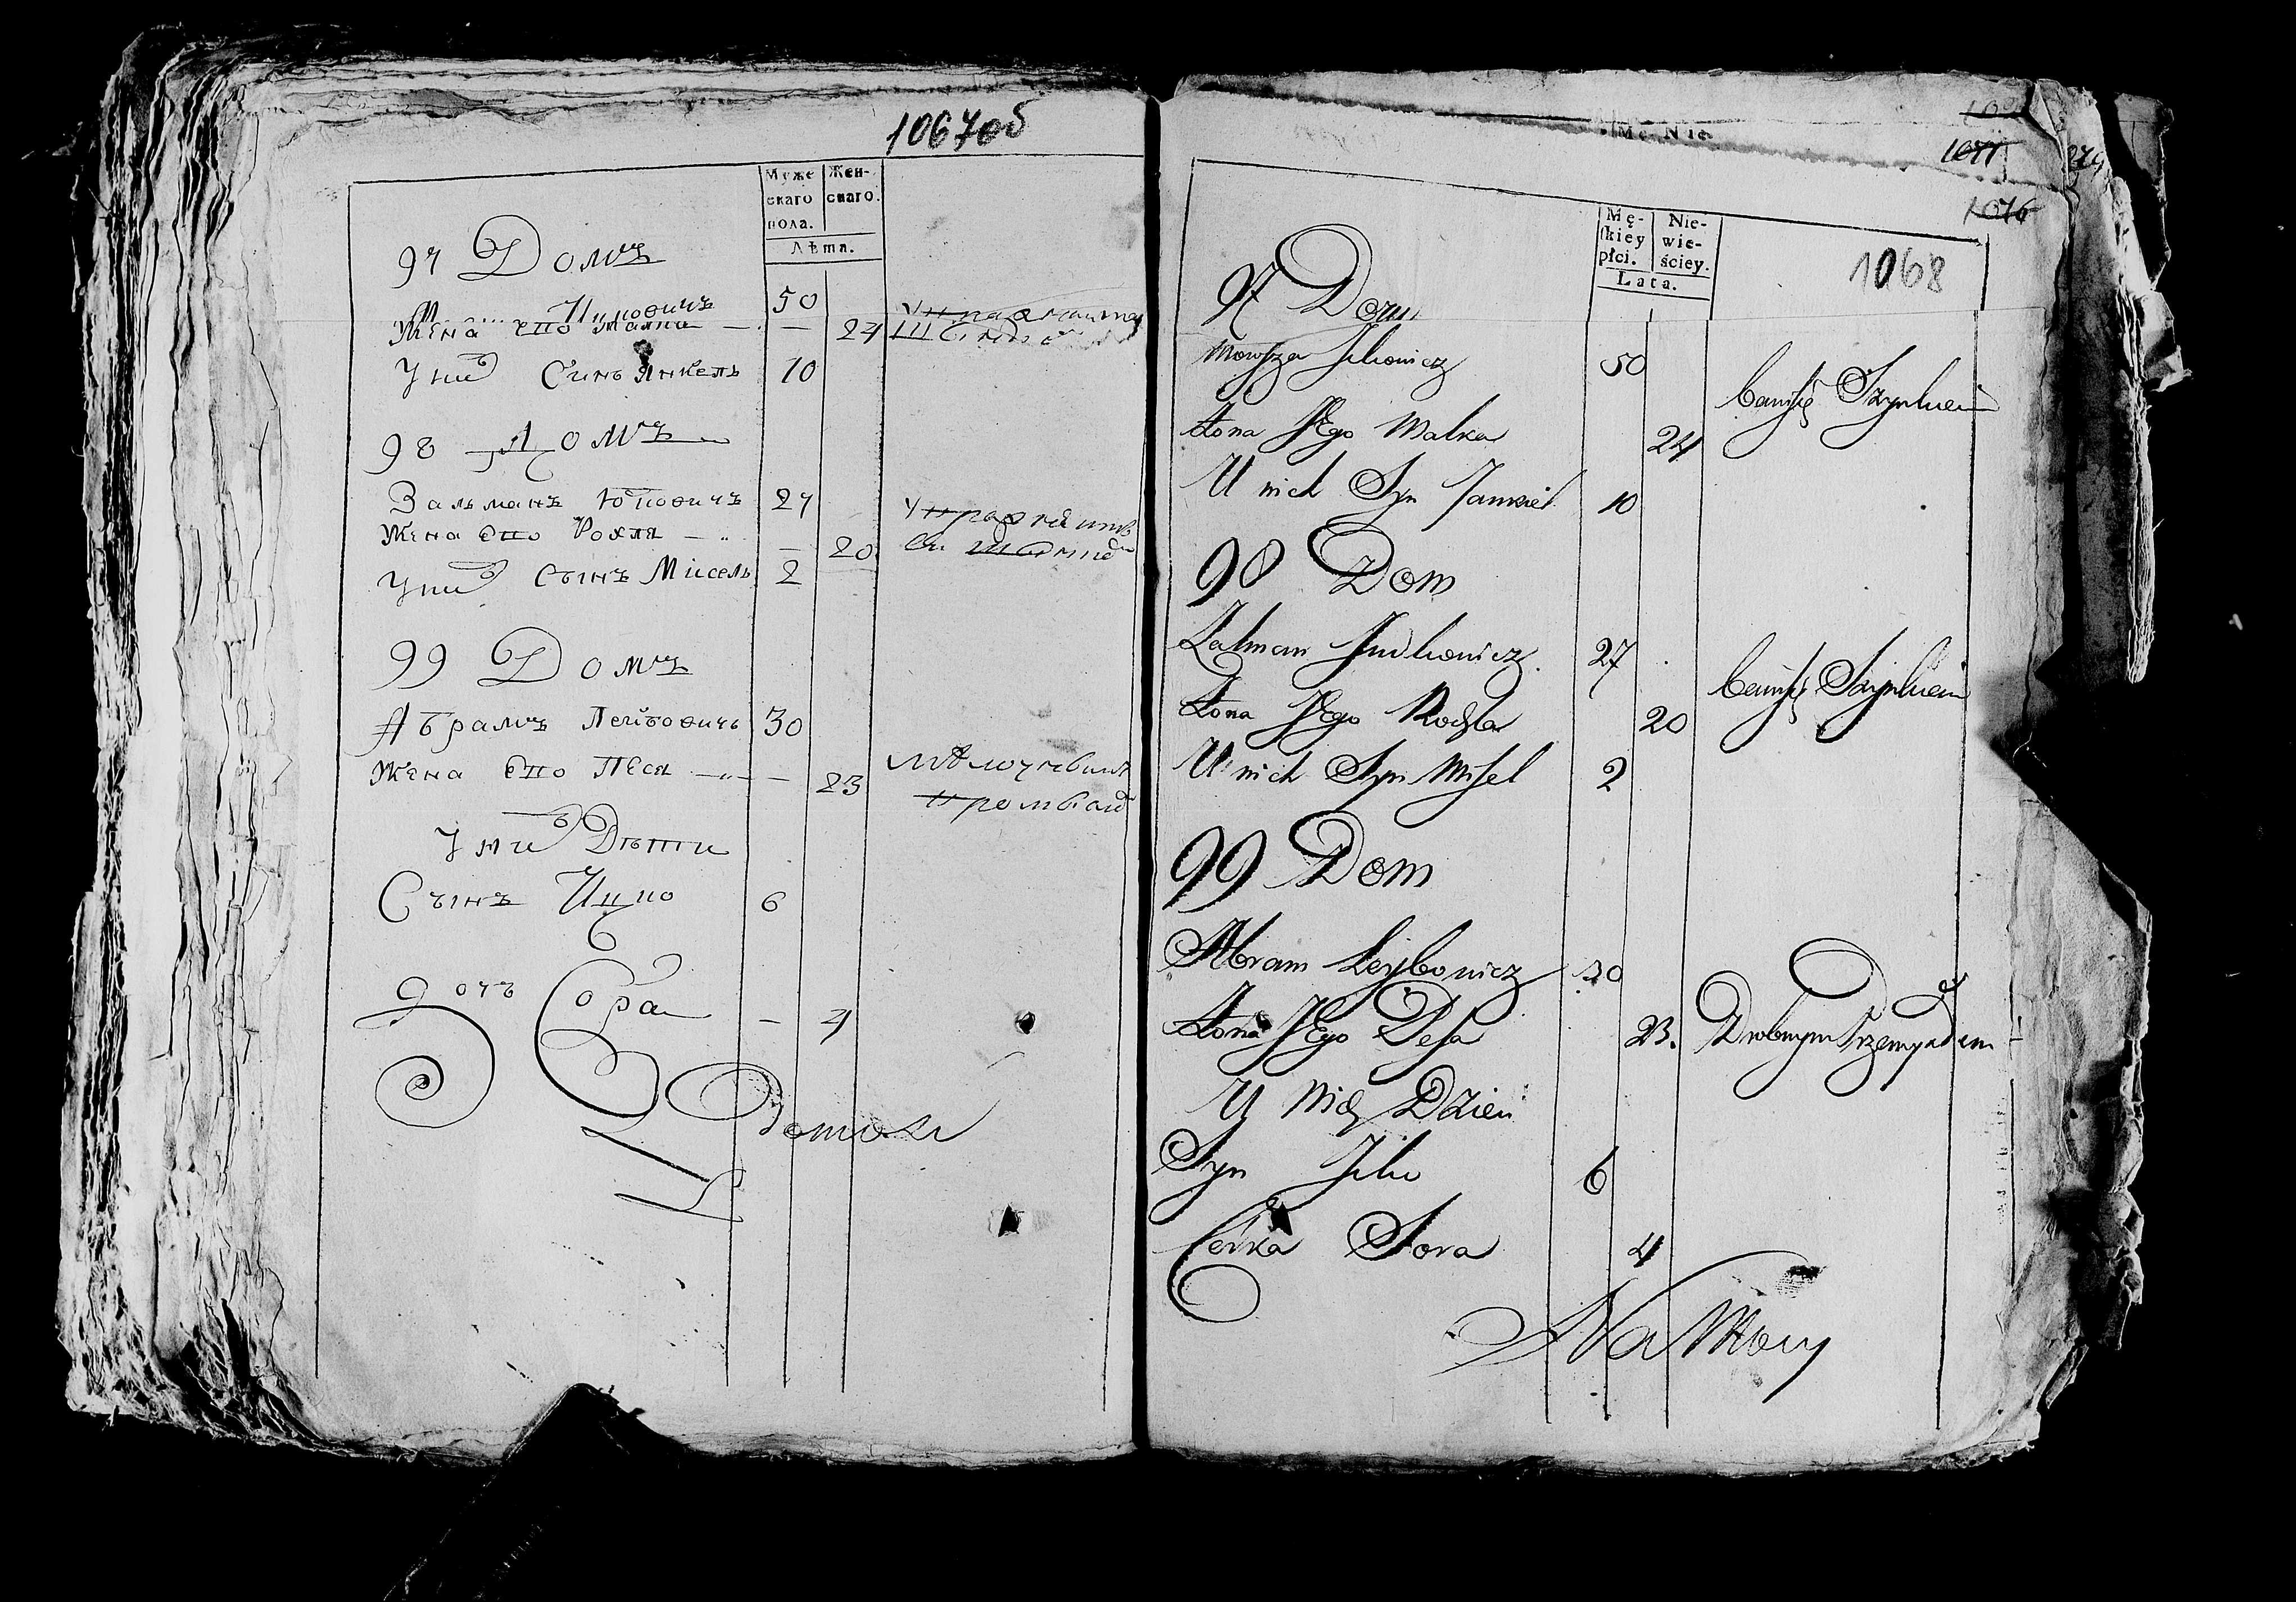 1067об
Муже
скаго
пола.
Жен-
скаго.
Лѣта.
97 Домъ
Ицковичъ 50
Жена Его Малка — — 24
У них Синъ Янкель 10
98 Домъ
Зальманъ Юдковичъ 27
Жена Его Рохля — — 20
У них Сынъ Мисель 2
99 Домъ
Абрамъ Лейбовичъ 30
Жена Его Песя — — 23
У них Дѣти
Сынъ Ицко 6
Дочь Сора — 4
1077
1076
1068
Mę-
skiey
płci.
Nie-
wie-
ściey.
Lata.
97 Dom
Mowsza Ickowicz 50
Żona Jego Malka 24
U nich Syn Jankiel 10
98 Dom
Zalman Judkowicz 27
Żona Jego Rochla 20
U nich Syn Misel 2
99 Dom
Abram Leybowicz 30
Żona Jego Pesa 23.
U Nich Dzieci
Syn Icko 6
Corka Sora 4